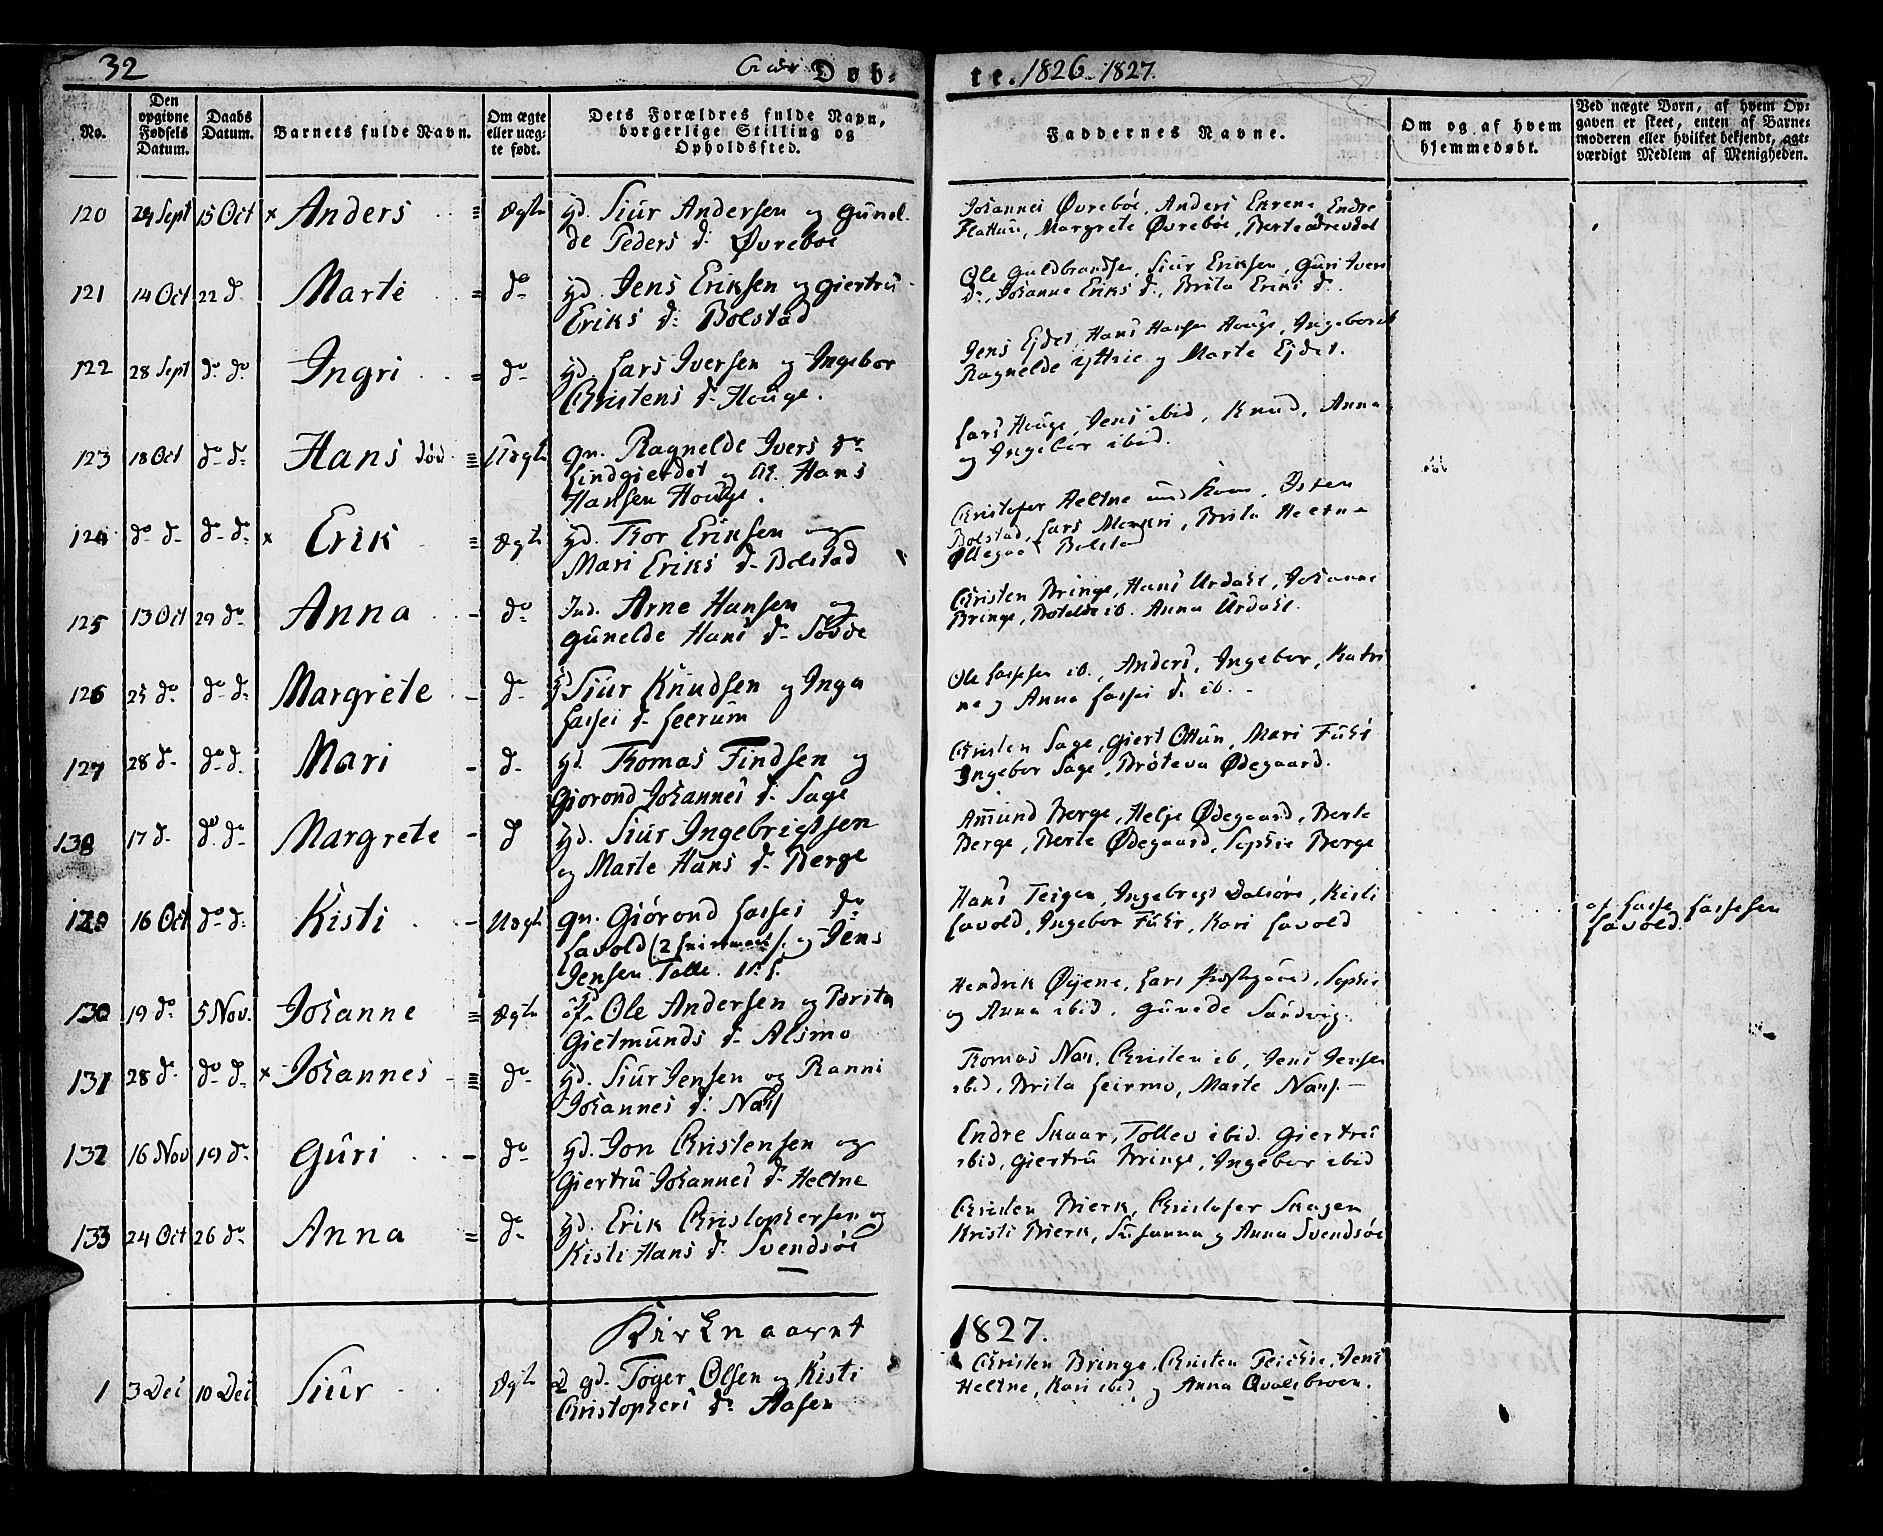 32
Døb-
te. 1826-1827.
No.
Den opgivne Fødsels Datum.
Daabs Datum.
Barnets fulde Navn.
Om ægte eller uægte født.
Dets Forældres fulde Navn, borgerlige Stilling og Opholdssted.
Faddernes Navne.
Om og af hvem hjemmedøbt.
Ved uægte Børn, af hvem Opgaven er skeet, enten af Barnemoderen eller hvilket bekjendt, agtværdigt Medlem af Menigheden.
120 24 Sept 15 Oct x Anders Ægte gd. Siur Andersen og Gunel-
de Peders d: Øvreboe
Johannes Øvreboe, Anders Ekrene, Endre
Margrete Øvreboe,
121 14 Oct 22 d. Marte do gd. Jens Eriksen og Giertru
Eriks d: Bolstad
Ole Guldbrandsen, Siur Eriksen, Guri Ivers
d., Johanne Eriks d., Brita Eriks d.
122 28 Sept do do Ingri do gd. Lars Iversen og Ingebor
Christens d- Houge.
Jens Ejdet, Hans Hansen Houge, Ingebor
Ragnelde og Marte Ejdet.
123 18 Oct do d: Hans død Uægte qn. Ragnelde Ivers do
Lindgierdet og Hans
Hansen Houge.
Lars Houge, Jens ibid, Knud, Anna
og Ingebor ibid.
124 do d- do d: x Erik Ægte gd. Thor Eriksen og
Mari Eriks d- Bolstad
Christofer Heltne
Bolstad, Lars Brita Heltne
Bolstad
125 13 Oct 29 do Anna do Ind. Arne Hansen og
Gunelde Hans d- Søvde
Christen Bringe, Hans Urdahl, Johanne
Bringe, Botelde ib. Anna Urdahl.
126 25 do do d: Margrete d- gd Siur Knudsen og Inga
Lasses d- Leerum
Ole Lassesen ib., Anders, Ingebor, Katri
ne og Anna Lasses d. ib.
127 28 d- do d. Mari d- gd. Thomas Findsen og
Giørond Johannes d- Sage
Christen Sage, Giert Ottun, Mari Fuhr
Ingebor Sage, Ødegaard.
138 17 d- do do Margrete d gd. Siur Ingebrigtsen
og Marte Hans d- Berge
Amund Berge, Helje Ødegaard, Berte
Berge, Berte Ødegaard, Sophie Berge
129 16 Oct do d: Kisti Uægte qn. Giørond Lasses do
Lavold (2 og Jens
Jensen Tolle.
Hans Teigen, Ingebrigt Dalsøre, Kisti
Lavold, Ingebor Fuhr, Kari Lavold
af Lasse Lassesen
Lavold.
130 19 do 5 Nov. Johanne Ægte Ole Andersen og Brita
Gietmunds d- Alsmo
Hendrik Øyene, Lars Sophie
og Anna ibid. Sandvig.
131 28 d. do d- x Johannes do gd. Siur Jensen og Ranni
Johannes d: Næss
Thomas Næs, Christen ib, Jens Jensen
ibid, Brita Leirmo, Marte Næss.
132 16 Nov 19 do Guri do gd. Jon Christensen og
Giertru Johannes d- Heltne
Endre Skaar, Tollev ibid. Giertru
ibid, Giertru Bringe, Ingebor ibid
133 24 Oct 26 do Anna do gd. Erik Christophersen og
Kisti Hans d: Svendsøe
Christen Bierk, Christofer Skagen
Kristi Bierk, Susanna og Anna Svendsøe
Kirkeaaret
1827.
1 3 Dec 10 Dec Siur Ægte gd. Tøger Olsen og Kisti
Christophers d: Aasen
Christen Bringe, Christen Jens
Heltne, Kari ibid og Anna